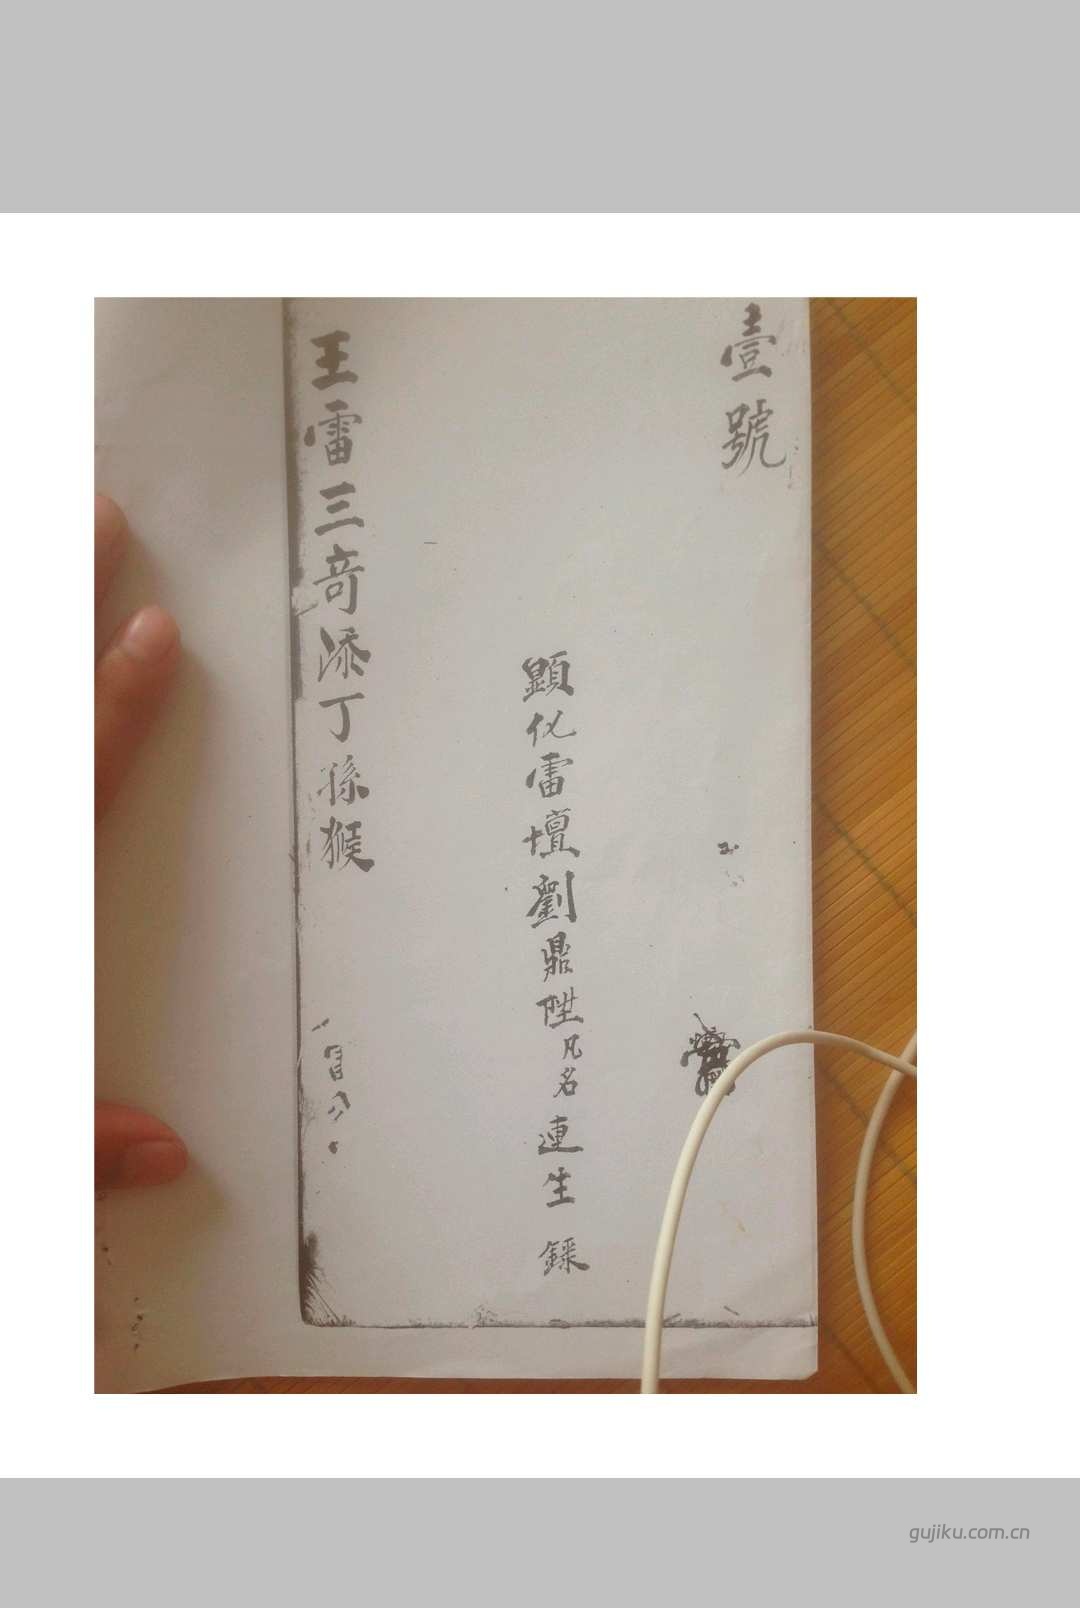 壹號
顯化雷壇劉鼎陞凡名連生錄
王雷三奇添丁孫猴
gujiku.com.cn